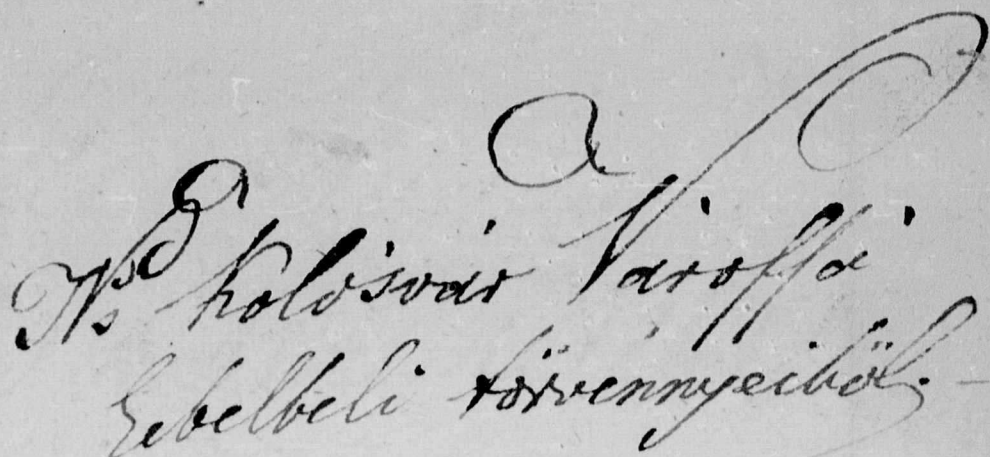 A
Ns Kolosvár Várossá
bebelbeli törvénnyeiböl.